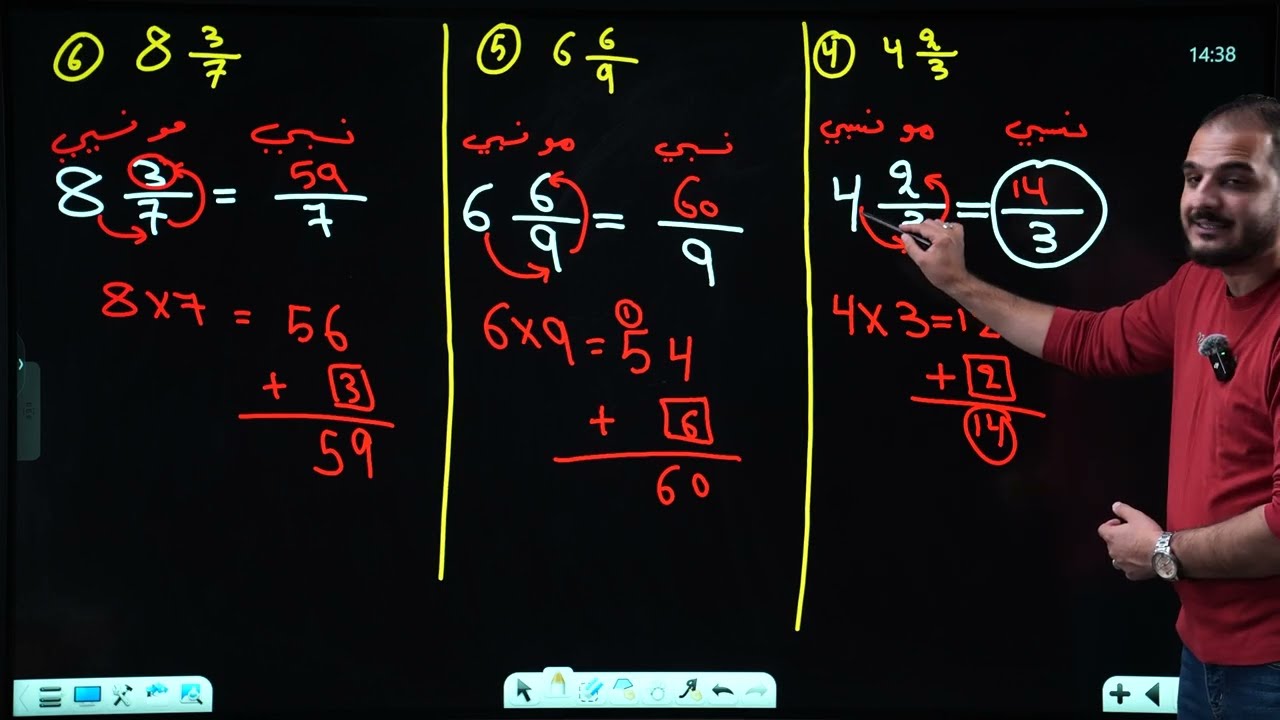 ④ 4 2/3
14:38
مو نسبي نسبي
4 2/3 = 14/3
4 x 3 = 12
+ 2
14
⑤ 6 6/9
مو نسبي نسبي
6 6/9 = 60/9
6 x 9 = 54
1
+ 6
60
⑥ 8 3/7
مو نسبي نسبي
8 3/7 = 59/7
8 x 7 = 56
+ 3
59